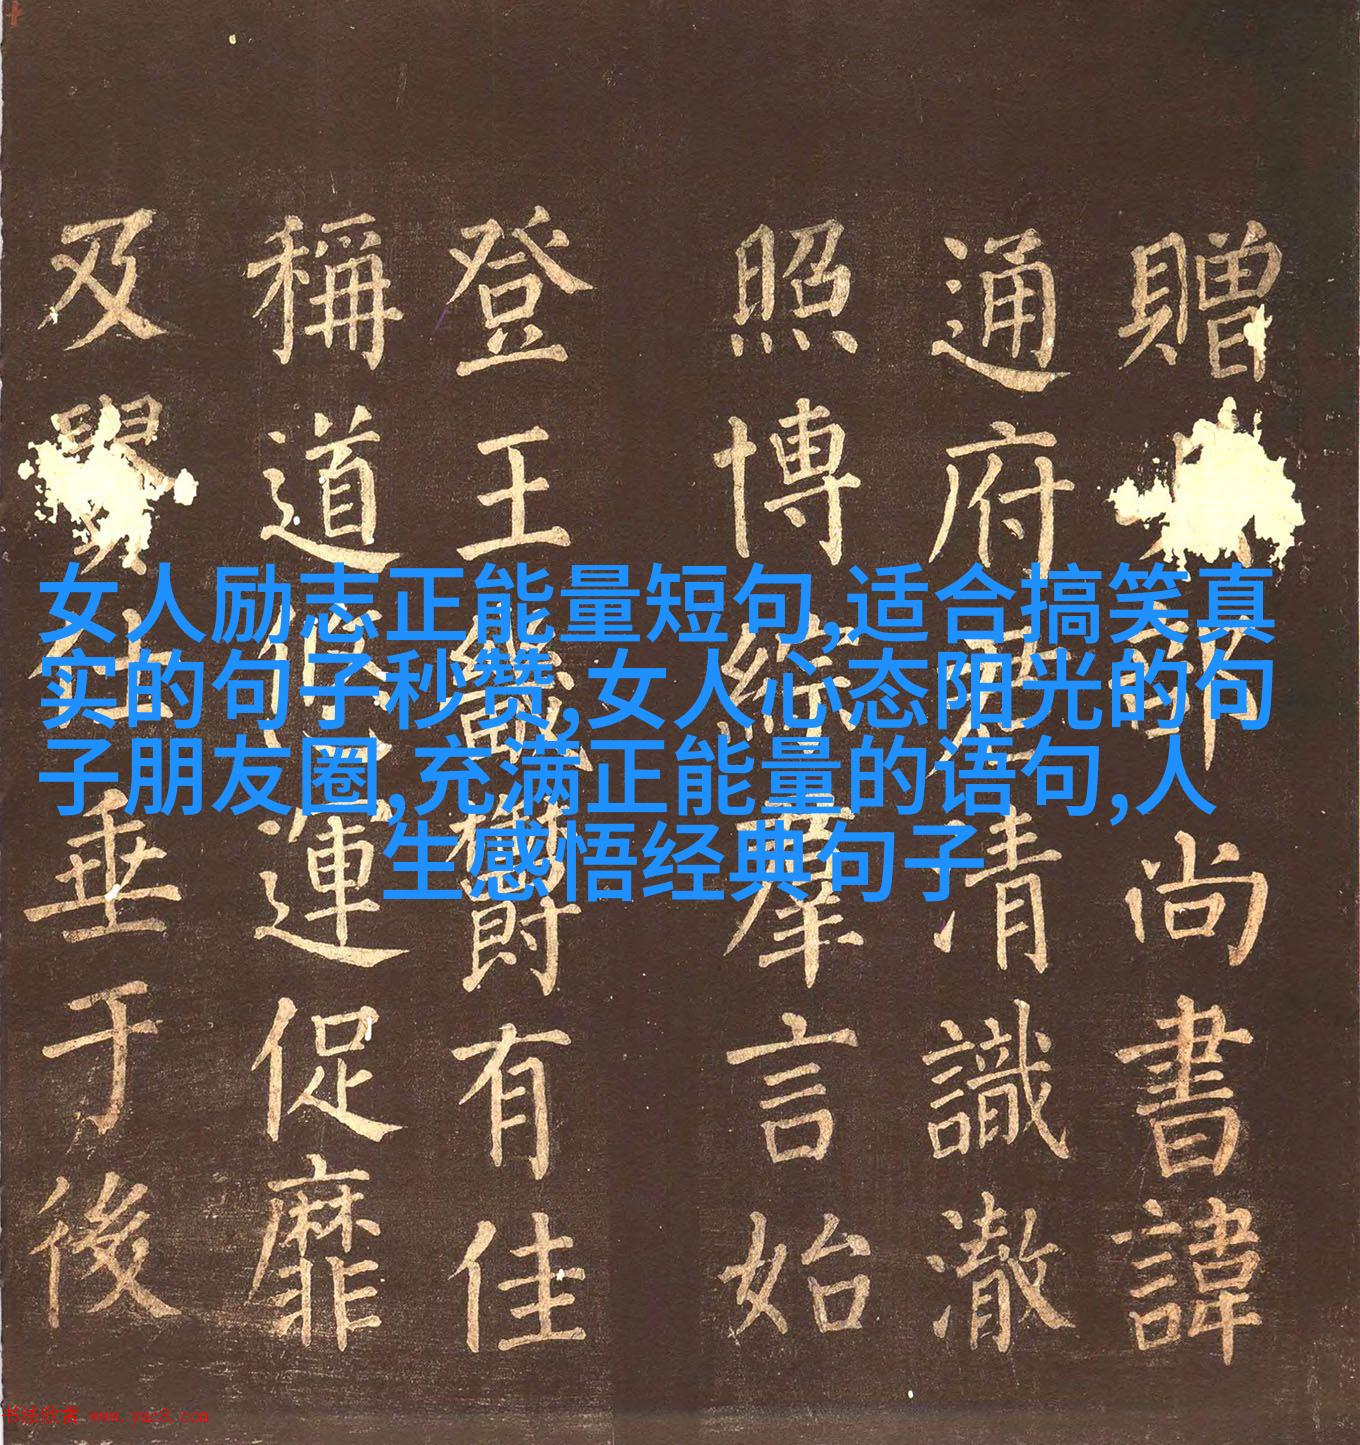 女人励志正能量短句,适合搞笑真
实的句子秒赞,女人心态阳光的句
子朋友圈,充满正能量的语句,人
生感悟经典句子
贈部尚書諱
通府君清識澈
照博綜羣言始
登王畿鬱有佳
稱道悠運促靡
及仕垂于後
书法欣赏 www.yac8.com